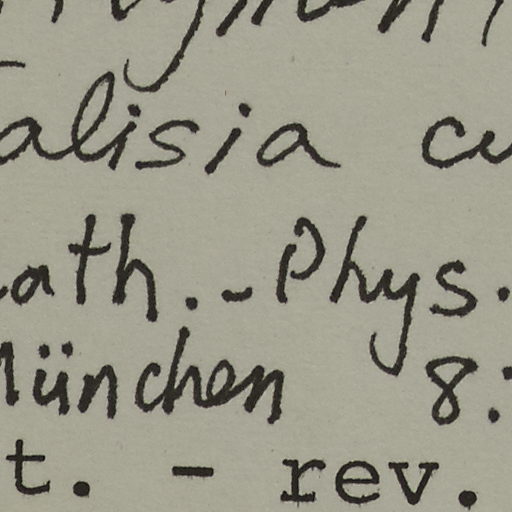 alisia cu
ath.-Phys.
München 8:
t. - rev.